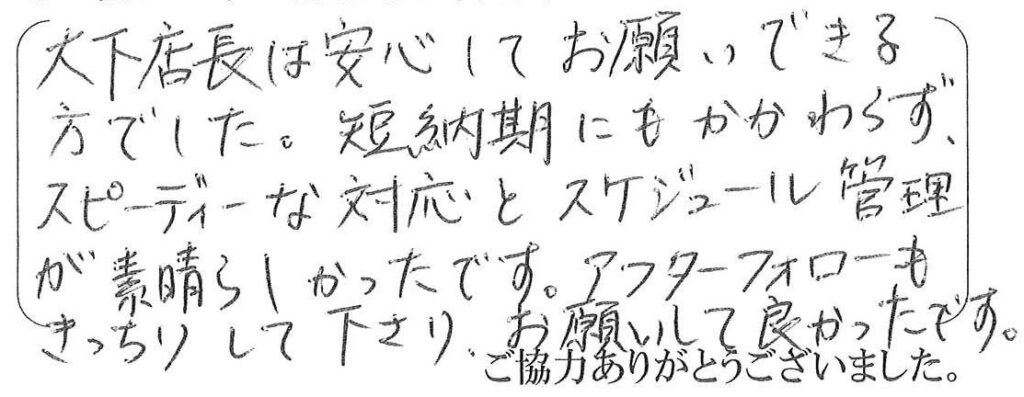 大下店長は安心してお願いできる
方でした。短納期にもかかわらず、
スピーディーな対応とスケジュール管理
が素晴らしかったです。アフターフォローも
きっちりして下さり、お願いして良かったです。
ご協力ありがとうございました。